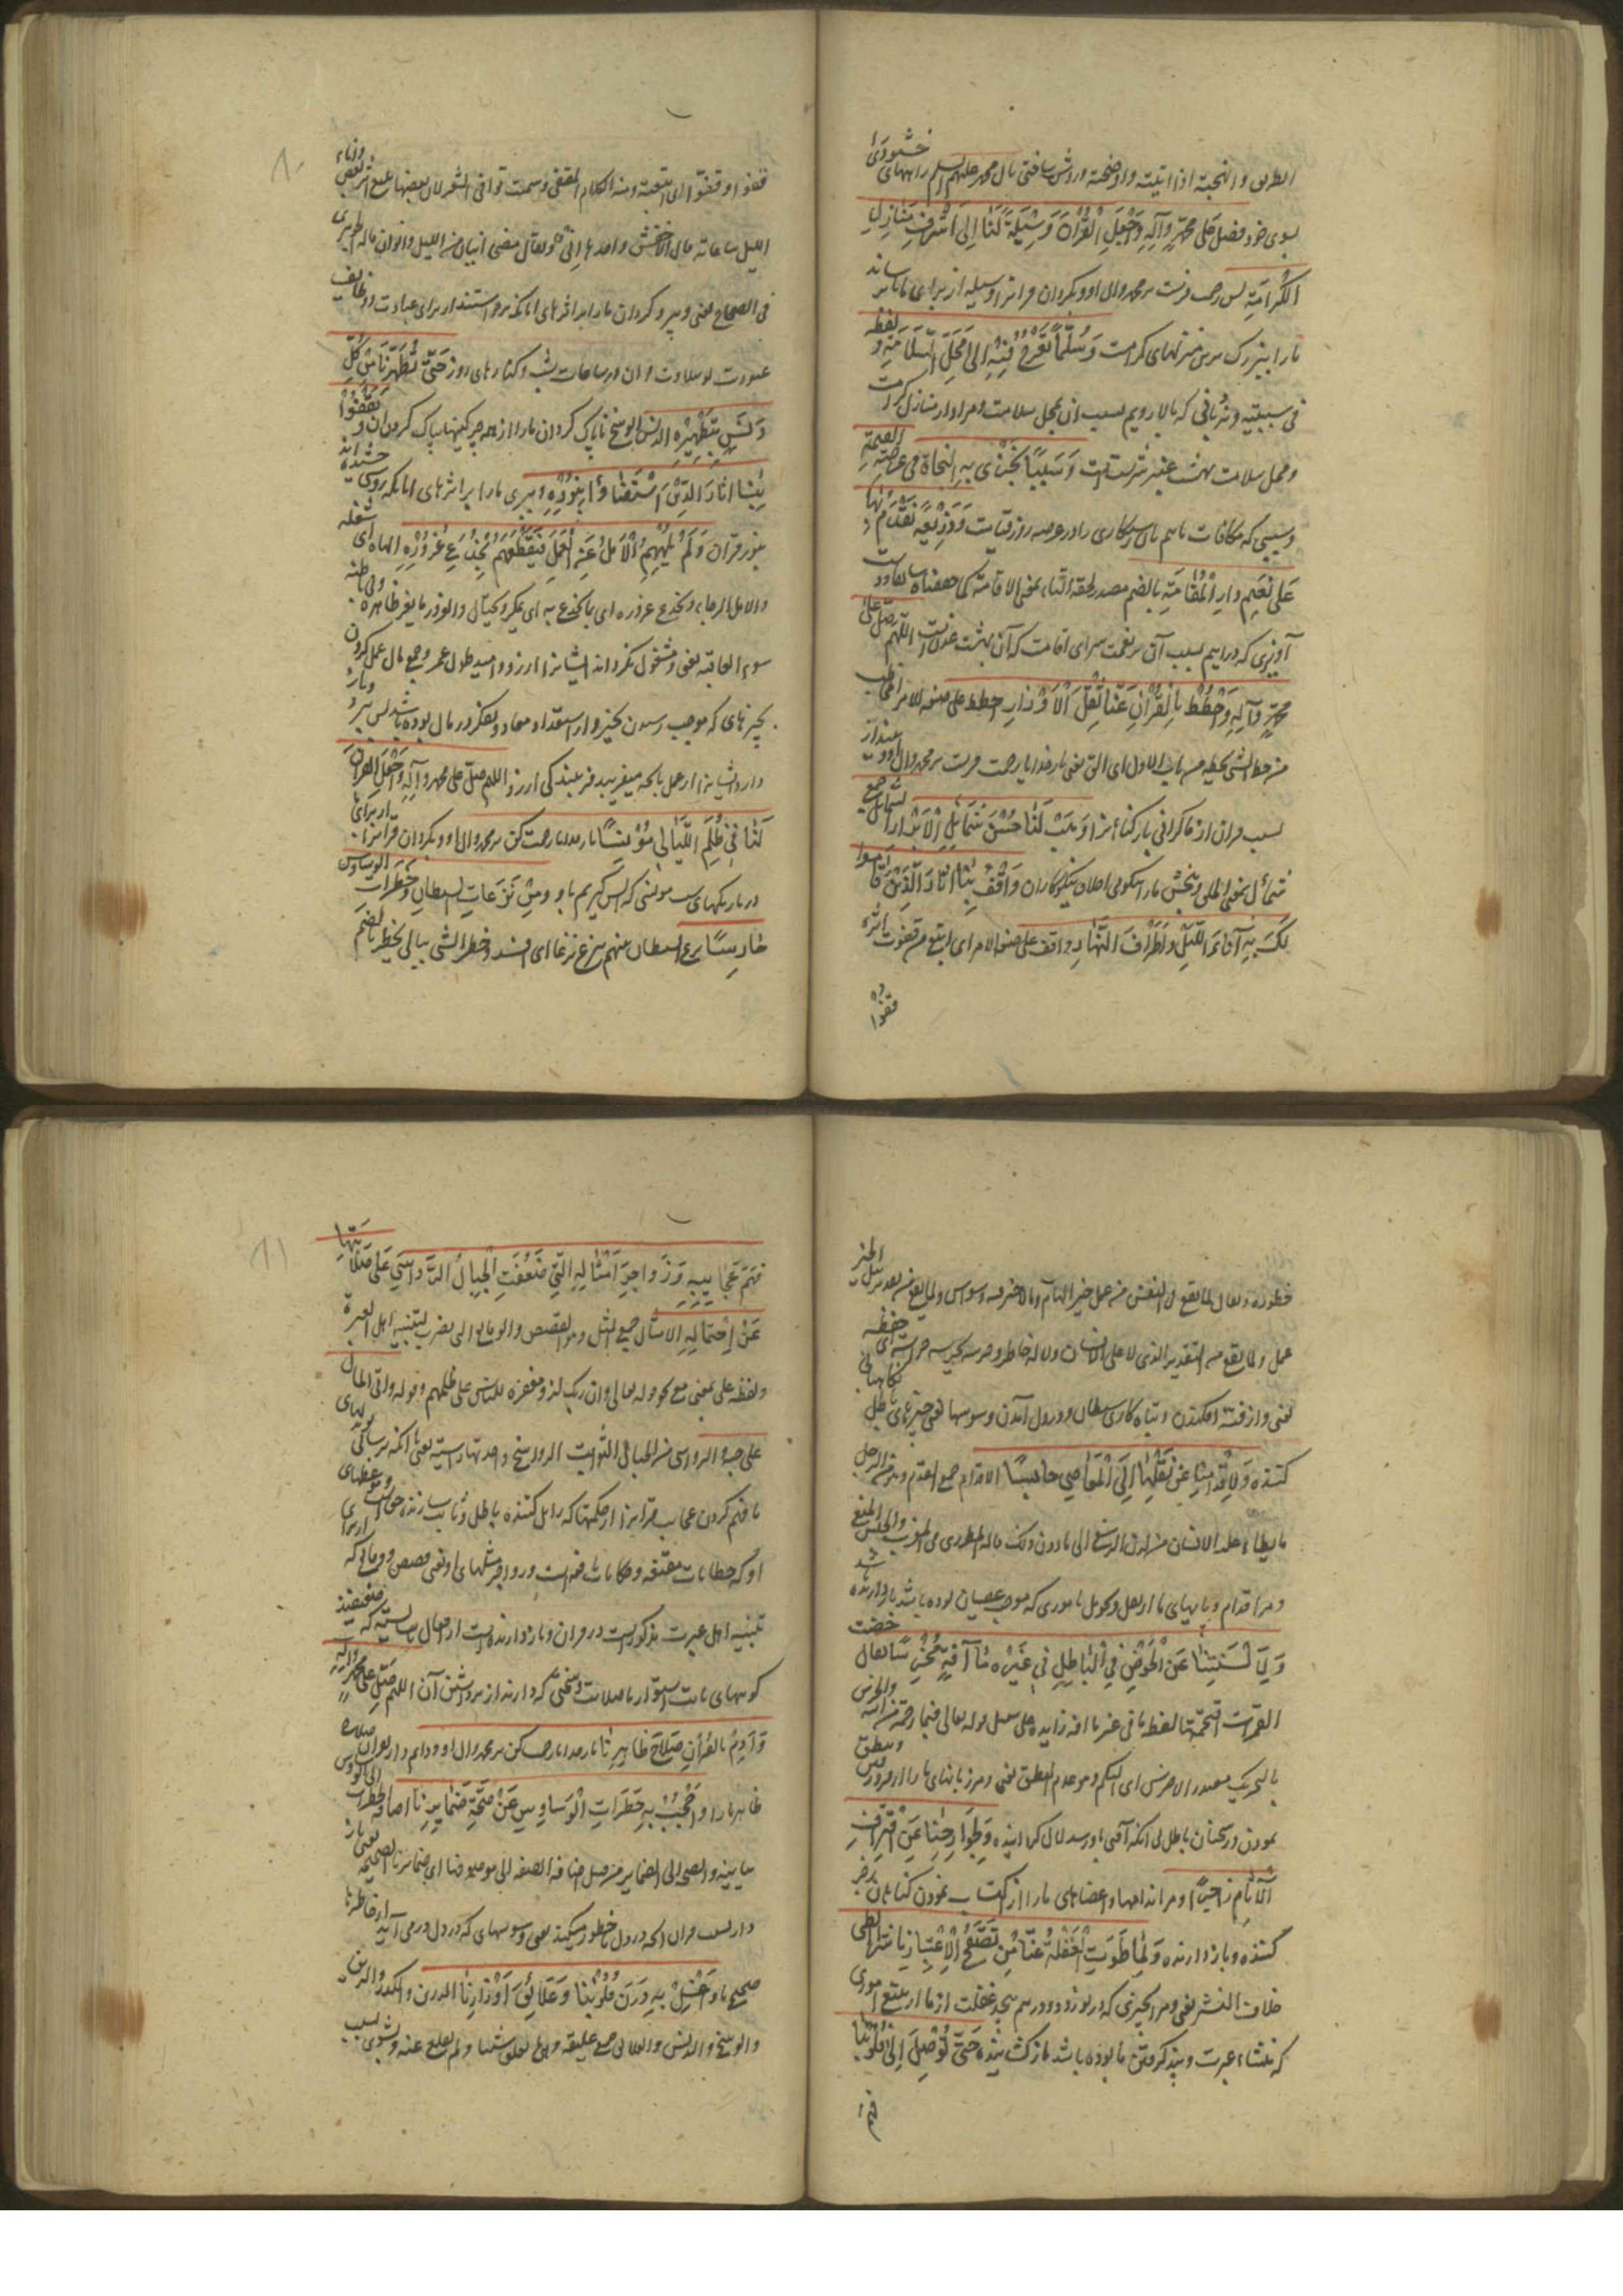 الطریق و انهجته اذا ابنته واوضحته وروشن ساختی بآل محمد علیهم السلم راههای خشنودی
بسوی خود فصل علی محمد وآله واجعل القرآن وسیلة لنا الی اشرف منازل
الکرامة پس رحمت فرست بر محمد وال او و بگردان قرانرا وسیله از برای ما تا برساند
مارا ببزرگ ترین منزلهای کرامت وسلما نعرج فیه الی محل السلامة و لفظه
فی سببیته و نردبانی که بالا رویم بسبب ان بمحل سلامت ومراد از منازل کرامت
ومحل سلامت بهشت عنبر سرشت است وسببا نجزی به النجاة فی عرصة القیمة
وسببی که مکافات یابیم بان رستکاری را در عرصه روز قیامت وذریعة نقدم بها
علی نعیم دار المقامة بالضم مصدر لحقه التاء بمعنی الاقامة
آویزی که درآییم بسبب آن بر نعمت سرای اقامت که آن بهشت عدنست اللهم صل علی
محمد وآله واحطط بالقرآن عنا ثقل الاوزار احطط علی صیغه الامر
من حط الشی یحطه من باب الاول ای القی یعنی بار خدایا رحمت فرست بر محمد وال او و بینداز
بسبب قران از ما کرانی بار کناه را وهب لنا حسن شمائل الابرار الشمایل جمع
شمأل بمعنی الخلق وببخش مارا نیکویی اخلاق نیکوکاران واقف بنا اثار الذین قاموا
لک به آناء اللیل واطراف النهار واقف علی صیغه الامر ای اتبع من قفوت اثره
قفوا
قفوا وقفوّا ای اتبعته ومنه الکلام المقفی وسمیت قوافی الشعر لان بعضها یتبع اثر بعض وآناء
اللیل ساعاته قال الاخفش واحدها انی ویقال مضی انیان من اللیل وانوان قاله الجوهری
فی الصحاح یعنی وپیرو کردان مارا بر اثرهای انانکه برپا ایستندا از برای عبادت و وظایف
عبودت تو بتلاوت ان در ساعات شب وکنارهای روز حتی تطهرنا من کل
دنس بتطهیره الدنس الوسخ تا پاک کردانی مارا از همه چرکینها بپاک کردن ان و تقفوا
بنا اثار الذین استضاؤا بنوره و ببری مارا بر اثرهای انانکه روشنی جسته اند
بنور قران ولم یلههم الامل عن العمل فیقطعهم بخدع غروره الهاه ای شغله
والامل الرجاء وخدع غروره ای ما یخدع به ای یمکر ویحتال والغرور ما یغر ظاهره وفی باطنه
سوء العاقبة یعنی ومشغول نکرداند ایشانرا ارزو وامید طول عمر وجمع مال از عمل کردن
بچیزهای که موجب رسیدن بخیر وار استعداد معاد وتفکر در مال بوده باشد پس ببرد وباز
دارد ایشانرا از عمل بانچه میفریبد فریبندکی ارزو اللهم صل علی محمد وآله واجعل القرآن
لنا فی ظلم اللیالی مؤنسا بار خدایا رحمت کن بر محمد وال او و بگردان قرانرا از برای ما
در تاریکیهای شب مونسی که انس کیریم باو ومن نزغات الشیطان وخطرات الوساوس
حارسا نزغ الشیطان بینهم ینزغ نزغا ای افسد وخطر الشی ببالی یخطر بالضم
خطورا ویقال لما یقع فی النفس من عمل خیر الهام وما لا خیر فیه وسواس ولما یقع من تقدیر نیل الخیر
عمل ولما یقع من التقدیر الذی لا علی الانسان ولا له خاطر وحرسته یحرسه حراسة ای حفظه
یعنی واز فتنه افکندن وتباه کاری شیطان و در دل آمدن وسوسها یعنی چیزهای باطل نکاهبانی
کننده ولاقدامنا عن نقلها الی المعاصی حابسا الاقدام جمع القدم وهو من الرجل
ما یطأ علیه الانسان من لدن الرسغ الی ما دون ذلک قاله المطرزی فی المغرب والحبس المنع
ومر اقدام وپایهای مارا از نقل وتحویل باموری که موجب عصیان تو بوده باشد باز دارنده شد
ولالسنتنا عن الخوض فی الباطل من غیر ما آفة مخرسا یقال خضت
الغمرات اقتحمتها لفظه ما فی غیر ما افة زایده علی سبیل قوله تعالی فبما رحمة من الله والخرس
بالتحریک مصدر الاخرس ای البکم وهو عدم النطق یعنی ومر زبانهای مارا از فرو رفتن ونطق
نمودن در سخنان باطل بی انکه آفتی باو رسد لال کرداننده ولجوارحنا عن اقتراف
الآثام زاجرا ومر اندامها واعضاهای مارا از اکتساب نمودن کناهان زجر
کننده وباز دارنده ولما طوت الغفلة عنا من تصفح الاعتبار ناشرا الطی
خلاف النشر یعنی ومر انچیزی که در نوردد ودر هم پیچد غفلت از ما از تتبع اموری
که منشاء عبرت وپند کرفتن ما بوده باشد باز کشاینده حتی توصل الی قلوبنا
فهم
فهم عجایبه وزواجر امثاله التی ضعفت الجبال الرواسی علی صلابتها
عن احتماله الامثال جمع المثل وهو القصص والوقایع التی یضرب لتنبیه اهل العبرة
ولفظه علی بمعنی مع کقوله تعالی وان ربک لذو مغفرة للناس علی ظلمهم وقوله واتی المال
علی حبه والرواسی من الجبال الثوابت الرواسخ واحدتها راسیة یعنی تا انکه برسانی بدلهای
ما فهم کردن عجایب قرانرا از حکمتها که زایل کننده باطل وثابت سازنده حق است وموعظهای
او که خطابات مقنعه وحکایات نافعه است وزواجر مثلهای او یعنی قصص ووقایعی که از برای
تنبیه اهل عبرت مذکورست در قران وباز دارنده است از افعال ناشایسته که ضعیفند
کوههای ثابت استوار با صلابت وسختی که دارند از برداشتن آن اللهم صل علی محمد وآله
وآدم بالقرآن صلاح ظاهرنا بار خدایا رحمت کن بر محمد وال او ودایم دار بقران صلاح
ظاهر مارا واحجب به خطرات الوساوس عن صحة ضمایرنا اضافه الخطرات الی الوساوس
بیانیه والصحة الی الضمایر من قبیل اضافه الصفه الی موصوفها ای ضمایرنا الصحیحة یعنی باز
دار بسبب قران انچه در دل خطور میکند یعنی وسوسهای که در دل در می آید از خاطرهای
صحیح ما واغسل به درن قلوبنا وعلائق اوزارنا الدرن والکدر والرین
والوسخ والدنس والعلایق جمع علیقة وهی ما یعلق بشیء ولم یقلع عنه وبشوی بسبب